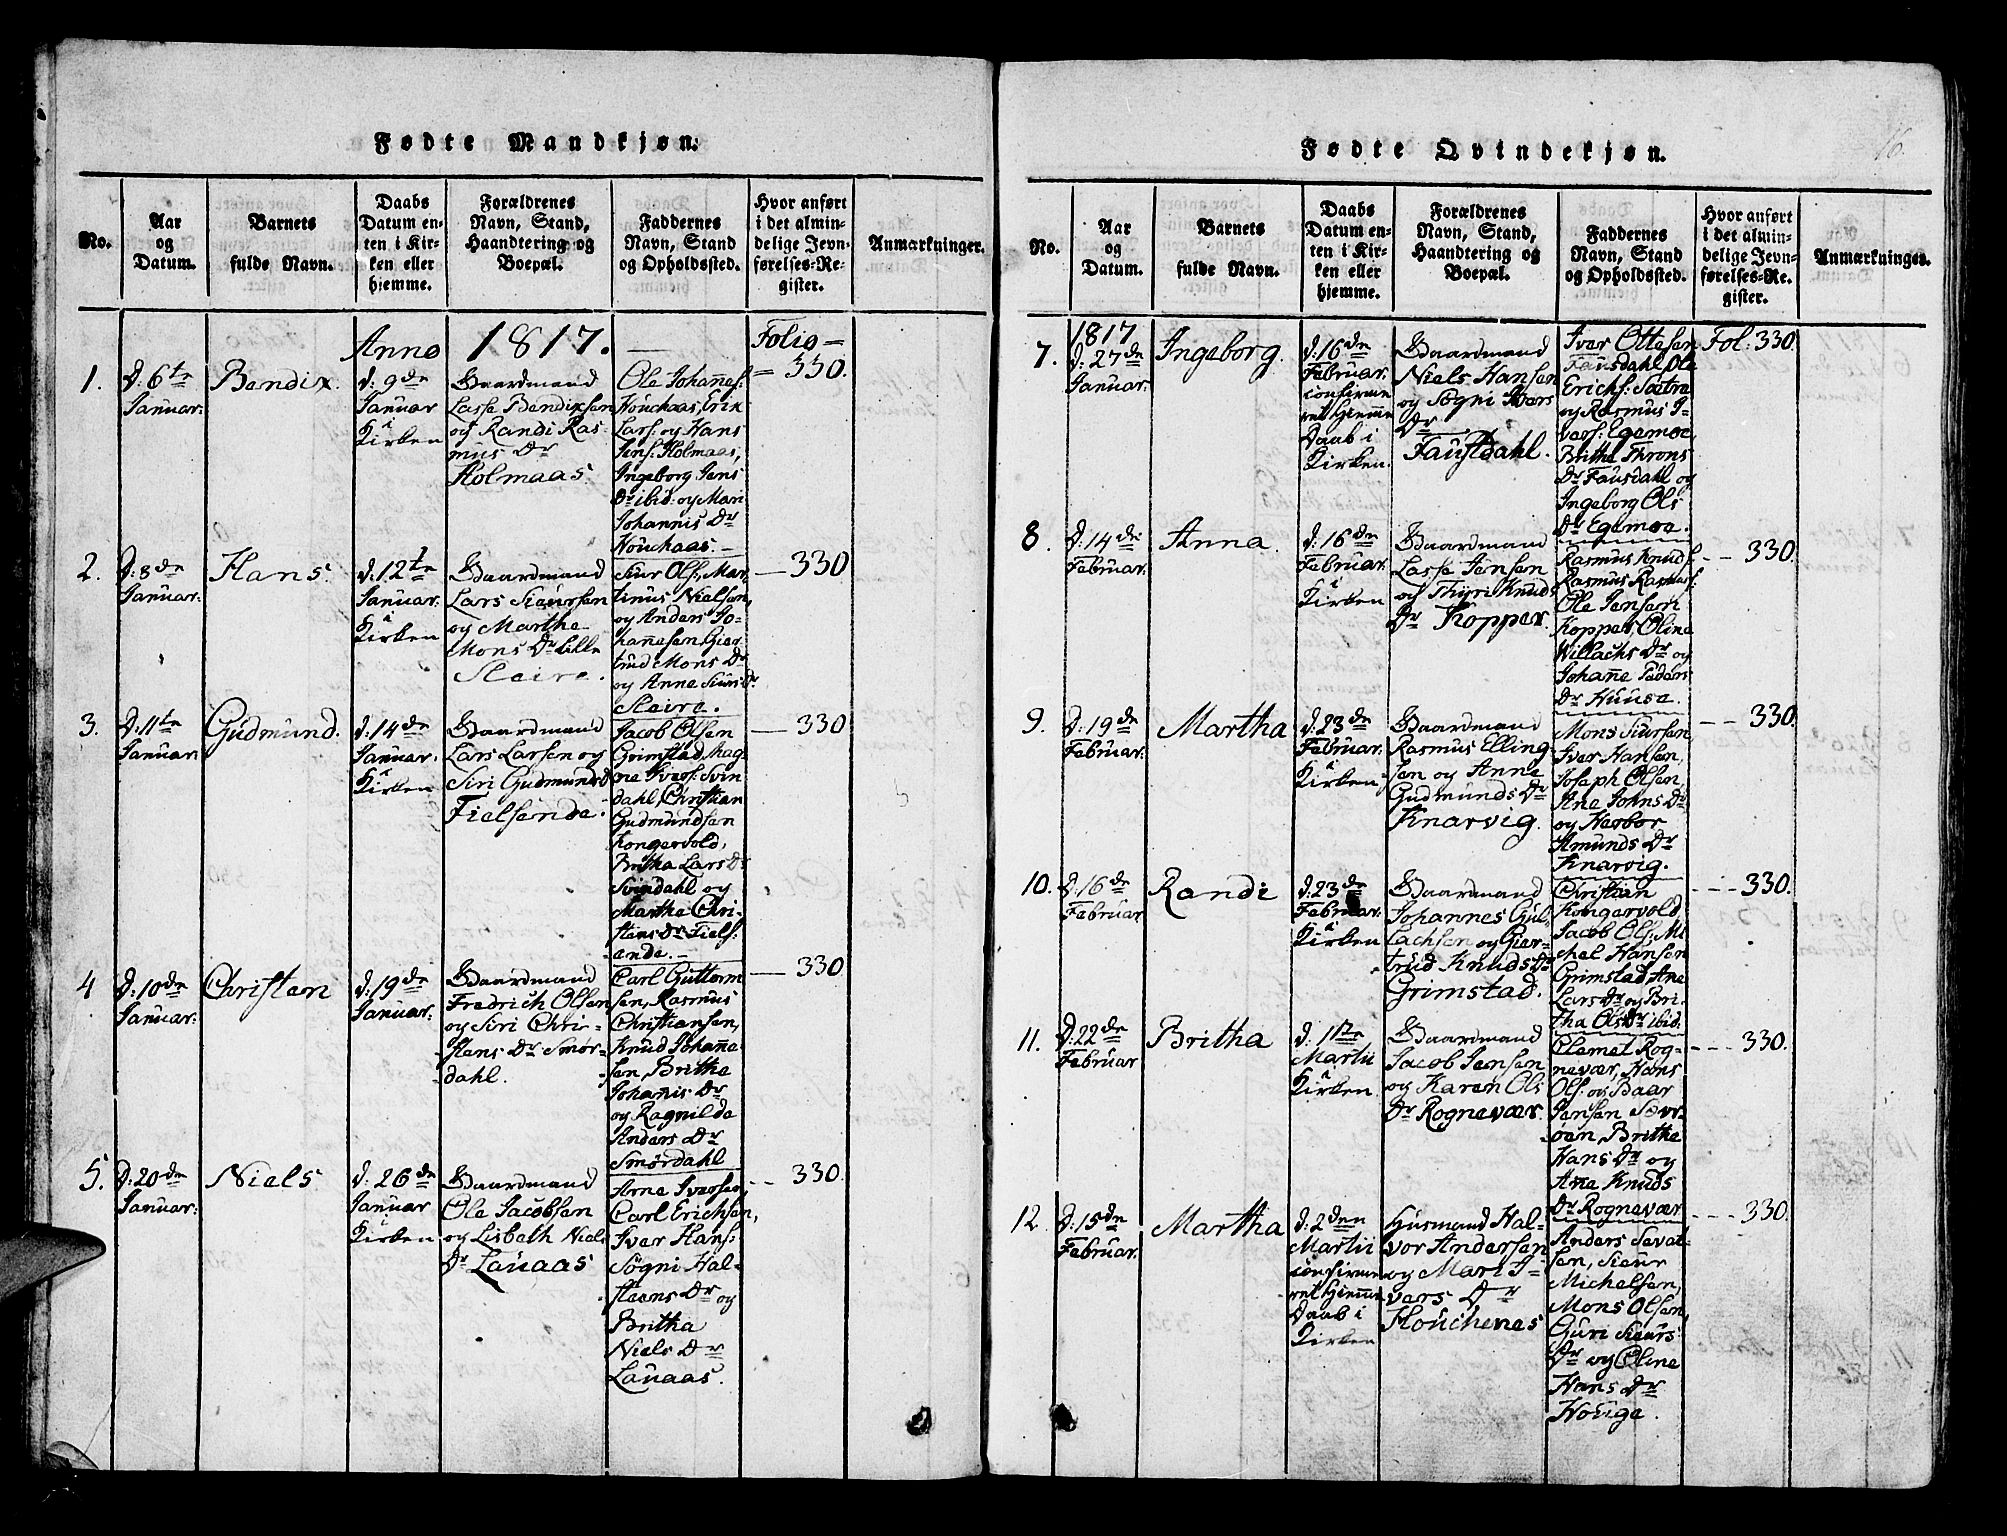 Fødte Mandkjøn.
No.
Aar
og
Datum.
Barnets
fulde Navn.
Daabs
Datum en-
ten i Kir-
ken eller
hjemme.
Forældrenes
Navn, Stand,
Haandtering og
Boepæl.
Faddernes
Navn, Stand
og Opholdssted.
Hvor anført
i det almin-
delige Jevn-
førelses-Re-
gister.
Anmærkninger.
Anno 1817.
Folio
1.
d. 6te
Januar:
Bendix.
d: 9de
Januar
i
Kirken
Gaardmand
Lasse Bendiksen
og Randi Ras-
mus Dr
Holmaas
Ole Johañes:
Houchaas, Erik
Lars: og Hans
Jens: Holmaas,
Ingeborg Jens
Dr ibid: og Mari
Johannis Dr
Houchaas.
= 330.
2.
D: 8de
Januar:
Hans.
d: 12te
Januar.
i
Kirken
Gaardmand
Lars Siursen
og Marthe
Mons Dr Lille
Sleire.
Siur Ols: Mar-
tinus Nielsen,
og Anders Jo-
hañesen, Gier-
trud Mons Dr
og Anne Siurs Dr
Sleire.
330
3.
D: 11te
Januar
Gudmund.
d: 14de
Januar.
i
Kirken
Gaardmand
Lars Larsen og
Siri Gudmunds
Fielsende.
Jacob Olsen
Grimstad, Mag-
ne Ivers: Svin
dahl, Christian
Gudmundsen
Kongervold,
Britha Lars Dr
Svindahl og
Martha Chri-
stens Dr Fiels:
ende.
330
4
D: 10de
Januar:
Christen
d: 19de
Januar:
Gaardmand
Fredrich Olsen
og Siri Chri-
stens Dr Smør-
dahl.
Carl Guttorm
sen, Rasmus
Christiansen,
Knud Johañe
sen, Brithe
Johañis Dr
og Ragnilde
Anders Dr
Smørdahl
330
5.
D: 20de
Januar:
Niels
d: 26de
Januar
i
Kirken
Gaardmand
Ole Jacobsen
og Lisbeth Niels
Dr Lauaas
Arne Iversen,
Carl Erichsen,
Iver Hans:
Sögni Hal-
steens Dr og
Britha
Niels Dr
Lauaas.
330.
Fødte Qvindekjøn.
16.
No.
Aar
og
Datum.
Barnets
fulde Navn.
Daabs
Datum en-
ten i Kir-
ken eller
hjemme.
Forældrenes
Navn, Stand,
Haandtering og
Boepæl.
Faddernes
Navn, Stand
og Opholdssted.
Hvor anført
i det almin-
delige Jevn-
førelses-Re-
gister.
Anmærkninger.
7.
1817
D: 27de
Januar:
Ingeborg.
d: 16de
Februar.
confirme
ret Hiemme
Daab i
Kirken.
Gaardmand
Niels Hansen
og Sögni Ivers
Dr
Faustdahl.
Iver Ottesen
Fausdahl, Ole
Erichs: Sætre
og Rasmus I-
vers: Egemoe,
Brithe Throns
Dr Fausdahl og
Ingeborg Ols
Dr Egemoe.
Fol: 330.
8.
D: 14de
Februar.
Anna.
d. 16de
Februar.
i
Kirken
Gaardmand
Lasse Jensen
og Thyri Knuds
Dr Kopper.
Rasmus Knuds
Rasmus Rasmus:
Ole Jensen
Kopper, Oline
Willachs Dr og
Johañe Peders
Dr Huuse.
330.
9.
D: 19de
Februar.
Martha
D: 23de
Februar.
i
Kirken
Gaardmand
Rasmus Elling-
sen og Anne
Gudmunds Dr
Knarvig.
Mons Siursen,
Iver Hansen,
Joseph Olsen,
Ane Johns Dr
og Herbor
Amunds Dr
Knarvig.
330.
10.
D: 16de
Februar
Randi
d: 23de
Februar.
i
Kirken
Gaardmand
Johannes Gul-
lachsen og Gier-
trud Knuds Dr
Grimstad.
Christian
Kongervold,
Jacob Ols: Mi
chel Hansen
Grimstad, Ane
Lars Dr og Bri-
tha Ols Dr ibid.
330.
11.
D: 22de
Februar
Britha
d: 1ste
Martii
i
Kirken.
Gaardmand
Jacob Jensen
og Karen Ols
Dr Rognevær.
Clemet Rog-
nevær, Hans
Ols: og Baar
Jensen Sævr-
øen, Brithe
Hans Dr og
Ane Knuds
Dr Rognevær
330.
12.
D: 15de
Februar.
Martha
d: 2den
Martii
confirme
ret Hiemme
Daab i
Kirken
Huusmand Hal-
vor Andersen
og Mari I-
vers Dr
Houchenes
Anders Sevat-
sen, Siur
Michelsen,
Mons Olsen
Guri Siurs:
Dr og Oline
Hans Dr
Houge.
330.